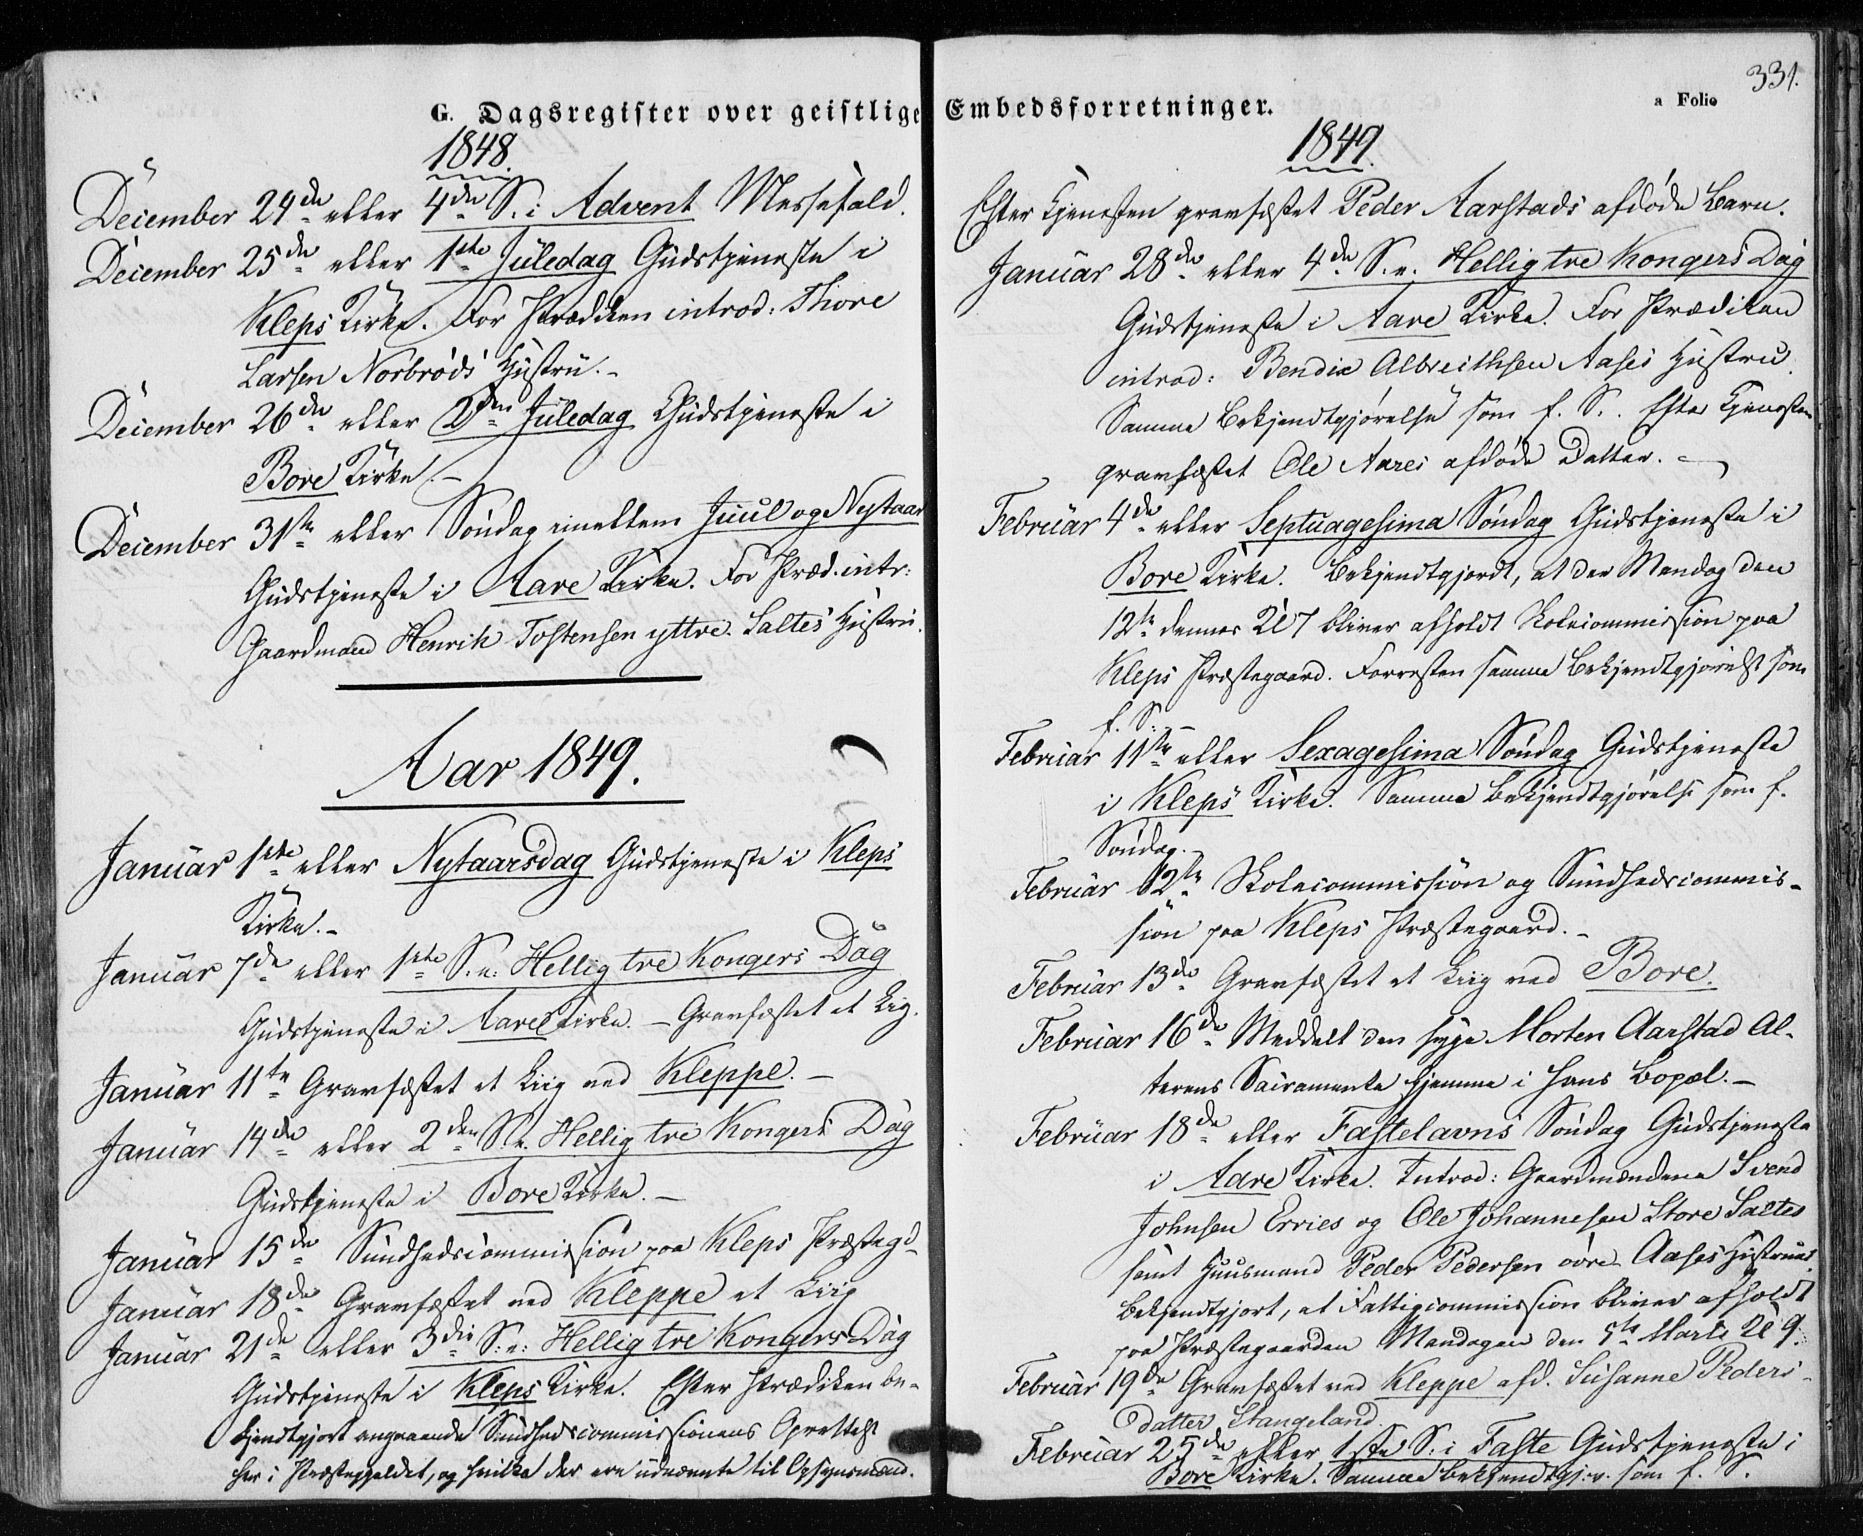 G. Dagsregister over geistlige Embedsforretninger.
1848.
December 24de eller 4de S. i Advent Messefald.
December 25de eller 1ste Juledag Gudstjeneste i
Kleps Kirke. For Prædiken introd: Thore
Larsen Norbrøds Hustru. -
December 26de eller 2den Juledag Gudstjeneste i
Bore Kirke. -
December 31te eller Søndag imellem Juul og Nytaar
Gudstjeneste i Aare Kirke. For Præd. intr:
Gaardmand Henrik Tostensen yttre Saltes Hustru.
Aar 1849.
Januar 1ste eller Nytaarsdag Gudstjeneste i Kleps
Kirke. -
Januar 7de eller 1ste S. e. Hellig tre Kongers Dag
Gudstjeneste i Aare Kirke. - Gravfæstet et Lig.
Januar 11te Gravfæstet et Liig ved Kleppe. -
Januar 14de eller 2den S. e. Hellig tre Kongers Dag
Gudstjeneste i Bore Kirke. -
Januar 15de Sundhedscommission paa Kleps Præstegd.
Januar 18de Gravfæstet ved Kleppe et Liig
Januar 21de eller 3die S: e: Hellig tre Kongers Dag
Gudstjeneste i Kleps Kirke. Efter Prædiken be-
kjendtgjort angaaende Sundhedscommissionens Oprettelse
her i Præstegjeldet, og hvilke der ere udnævnte til Opsynsmænd.
331.
a Folio
1849.
Efter Tjenesten gravfæstet Peder Aarstads afdøde Barn.
Januar 28de eller 4de S. e. Hellig tre Kongers Dag
Gudstjeneste i Aare Kirke. For Prædiken
introd: Bendix Albreithsen Aases Hustru.
Samme Bekjendtgjørelse som f. S. Efter Tjenesten
gravfæstet Ole Aares afdøde Datter. -
Februar 4de eller Septuagesima Søndag Gudstjeneste i
Bore Kirke. Bekjendtgjordt, at der Mandag den
12te dennes Kl 7 bliver afholdt Skolecommission paa
Kleps Præstegaard. Forresten samme Bekjendtgjørelse som
f. S. -
Februar 11te eller Sexagesima Søndag Gudstjeneste
i Kleps Kirke. Samme Bekjendtgjørelse som f.
Søndag.
Februar 12te Skolecommission og Sundhedscommis-
sion paa Kleps Præstegaard. -
Februar 13de Gravfæstet et Liig ved Bore.
Februar 16de Meddelt den syge Morten Aarstad Al-
terens Sacramente hjemme i hans Bopæl. -
Februar 18de eller Fastelavns Søndag Gudstjeneste
i Aare Kirke. Introd: Gaardmændene Svend
Johnsen Erries og Ole Johannesen Store Saltes
samt Huusmand Peder Pedersen øvre Aases Hustruer.
Bekjendtgjort, at Fattigcommission bliver afholdt
paa Præstegaarden Mandagen den 5te Marts Kl 9.
Februar 19de Gravfæstet ved Kleppe afd. Susanne Peders-
datter Stangeland.
Februar 25de eller 1ste S. i Faste Gudstjeneste i
Bore Kirke. Samme Bekjendtgj. som f. S.